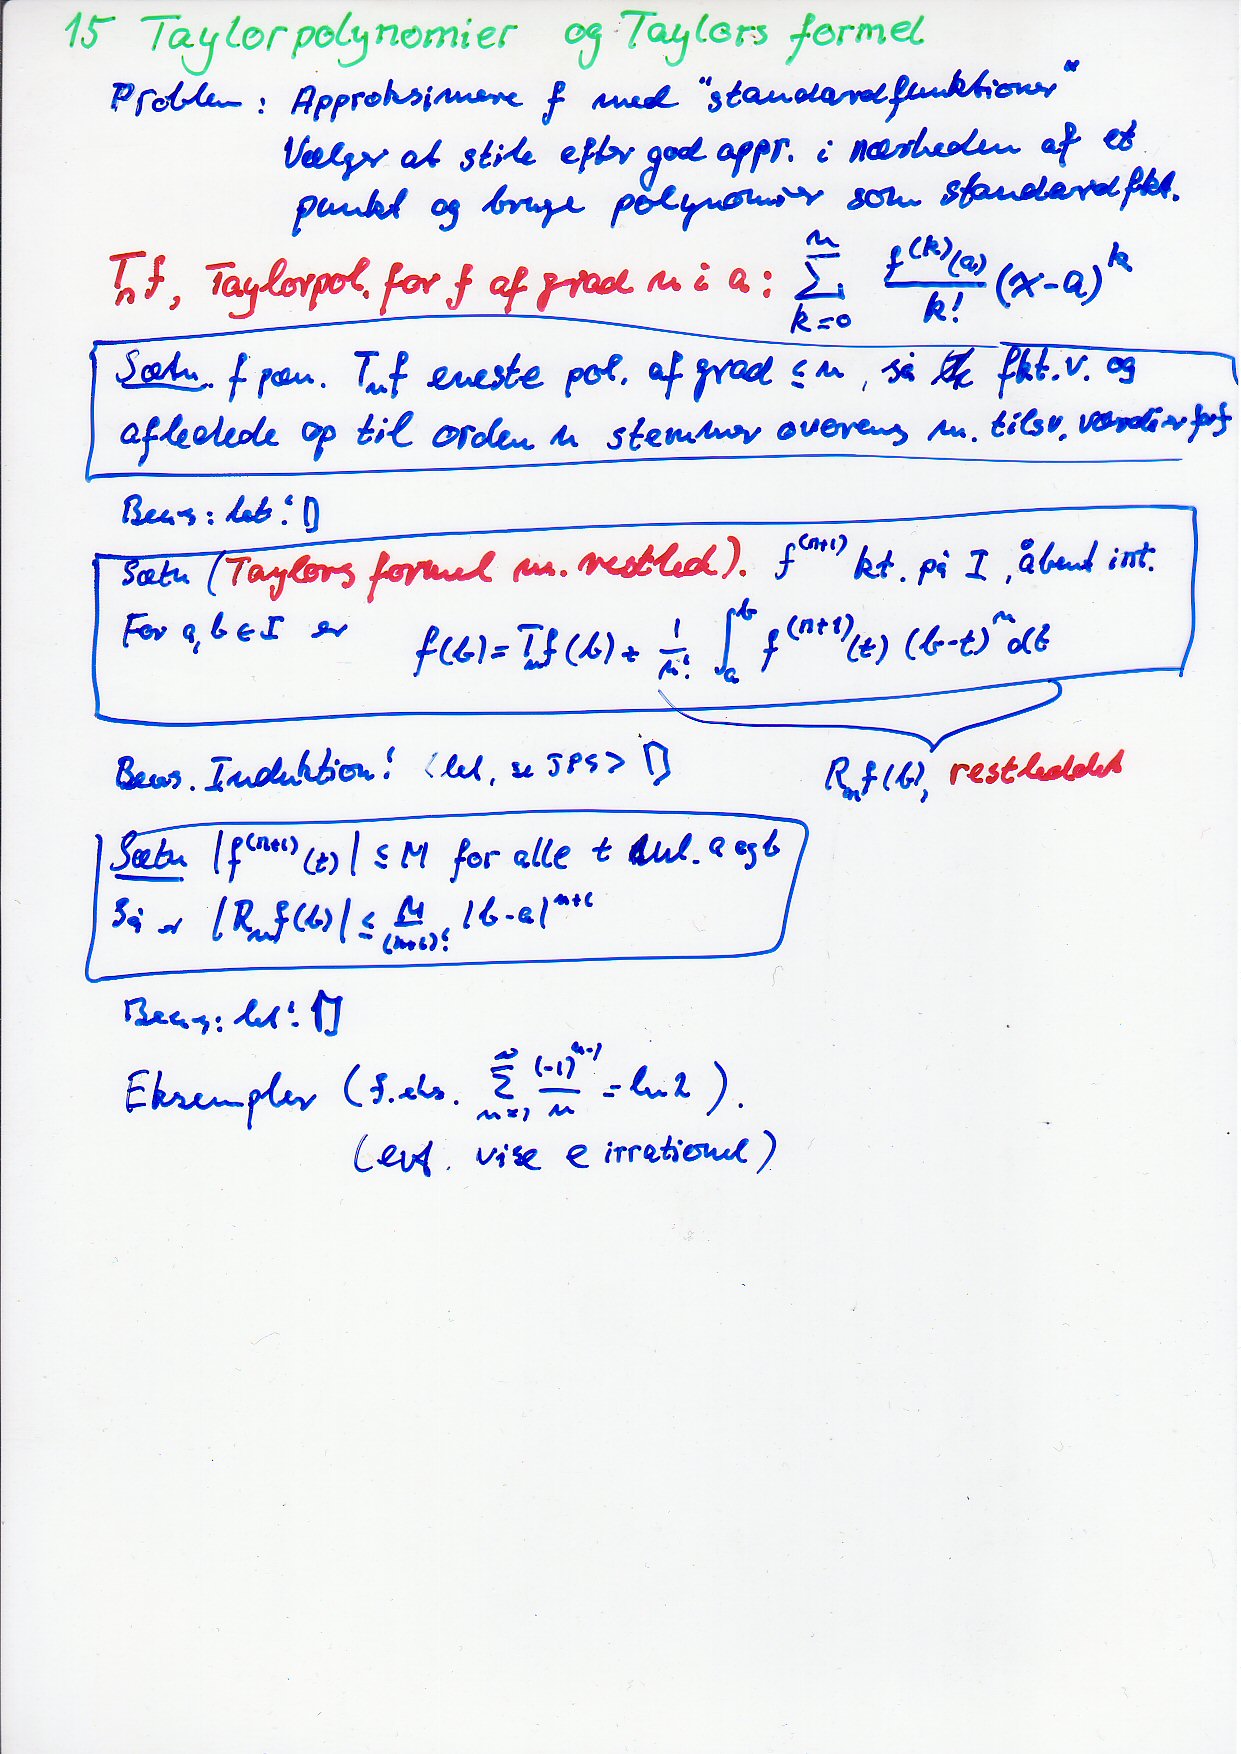 15 Taylorpolynomier og Taylors formel
Problem: Approksimere f med "standardfunktioner"
Vælger at stile efter god appr. i nærheden af et
punkt og bruge polynomier som standardfkt.
Tₙf, Taylorpol. for f af grad n i a: ∑_{k=0}^{n} f^{(k)}(a)/k! (x-a)^k
Sætn. f pæn. Tₙf eneste pol. af grad ≤ n, så fkt.v. og
afledede op til orden n stemmer overens m. tilsv. værdier for f
Bevis: let! []
Sætn (Taylors formel m. restled). f^{(n+1)} kt. på I, åbent int.
For a, b ∈ I er f(b) = Tₙf(b) + 1/n! ∫_a^b f^{(n+1)}(t) (b-t)^n dt
Bevis. Induktion! <let, se JPS> []
Rₙf(b), restleddet
Sætn |f^{(n+1)}(t)| ≤ M for alle t ml. a og b
Så er |Rₙf(b)| ≤ M/(n+1)! |b-a|^{n+1}
Bevis: let! []
Eksempler (f.eks. ∑_{n=1}^{∞} (-1)^{n-1}/n = ln 2).
(evt. vise e irrationel)